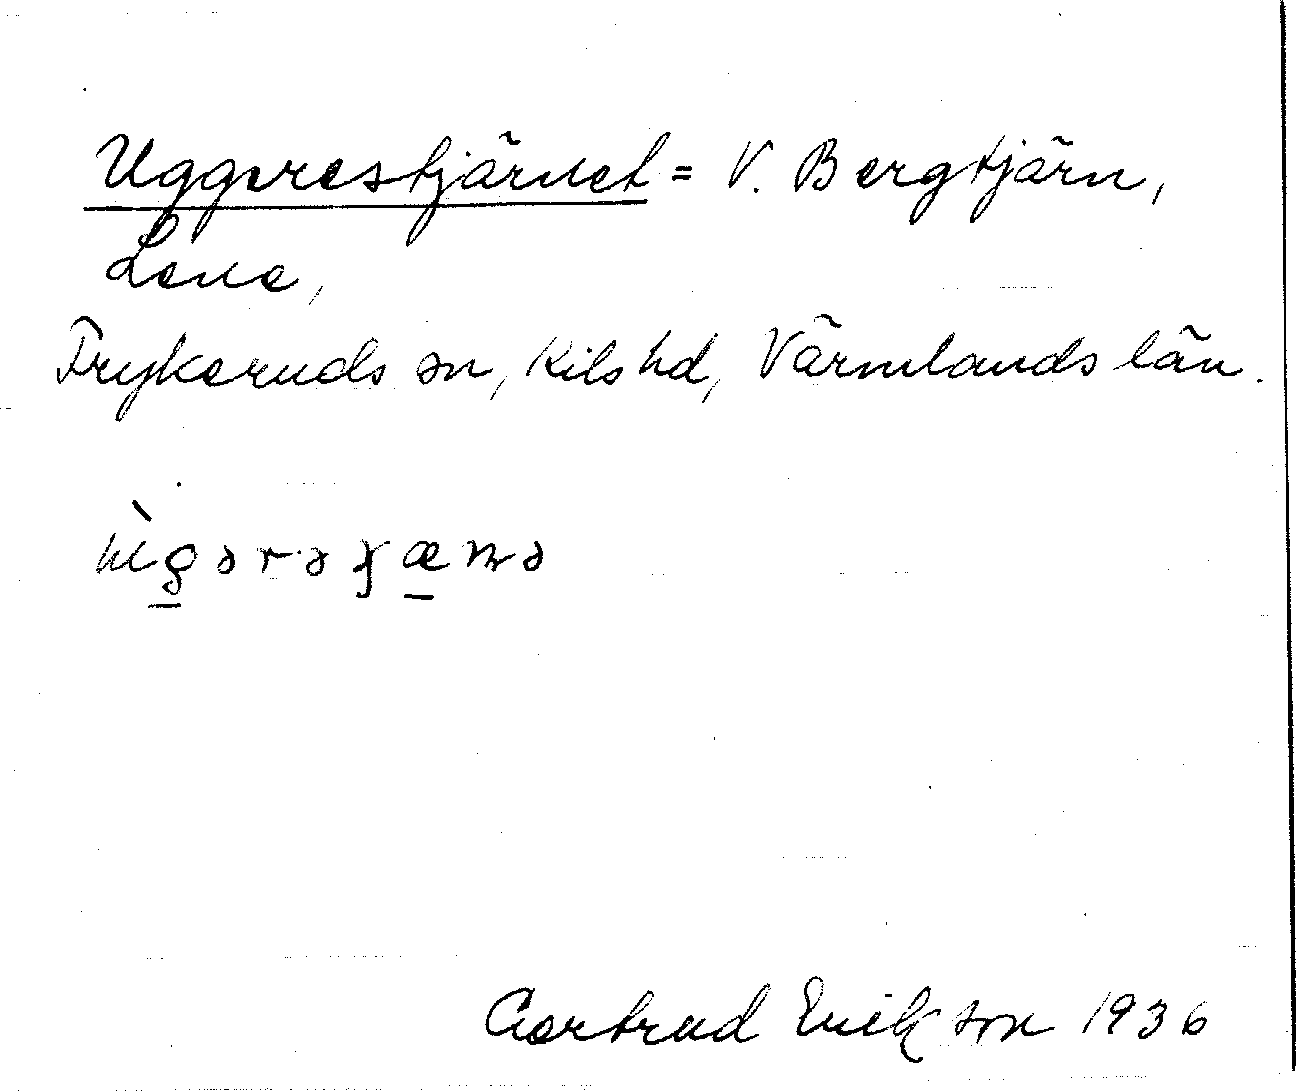 Uggerestjärnet = V. Bergtjärn,
Lene,
Frykeruds sn, Kils hd, Värmlands län.
Gertrud Erikson 1936